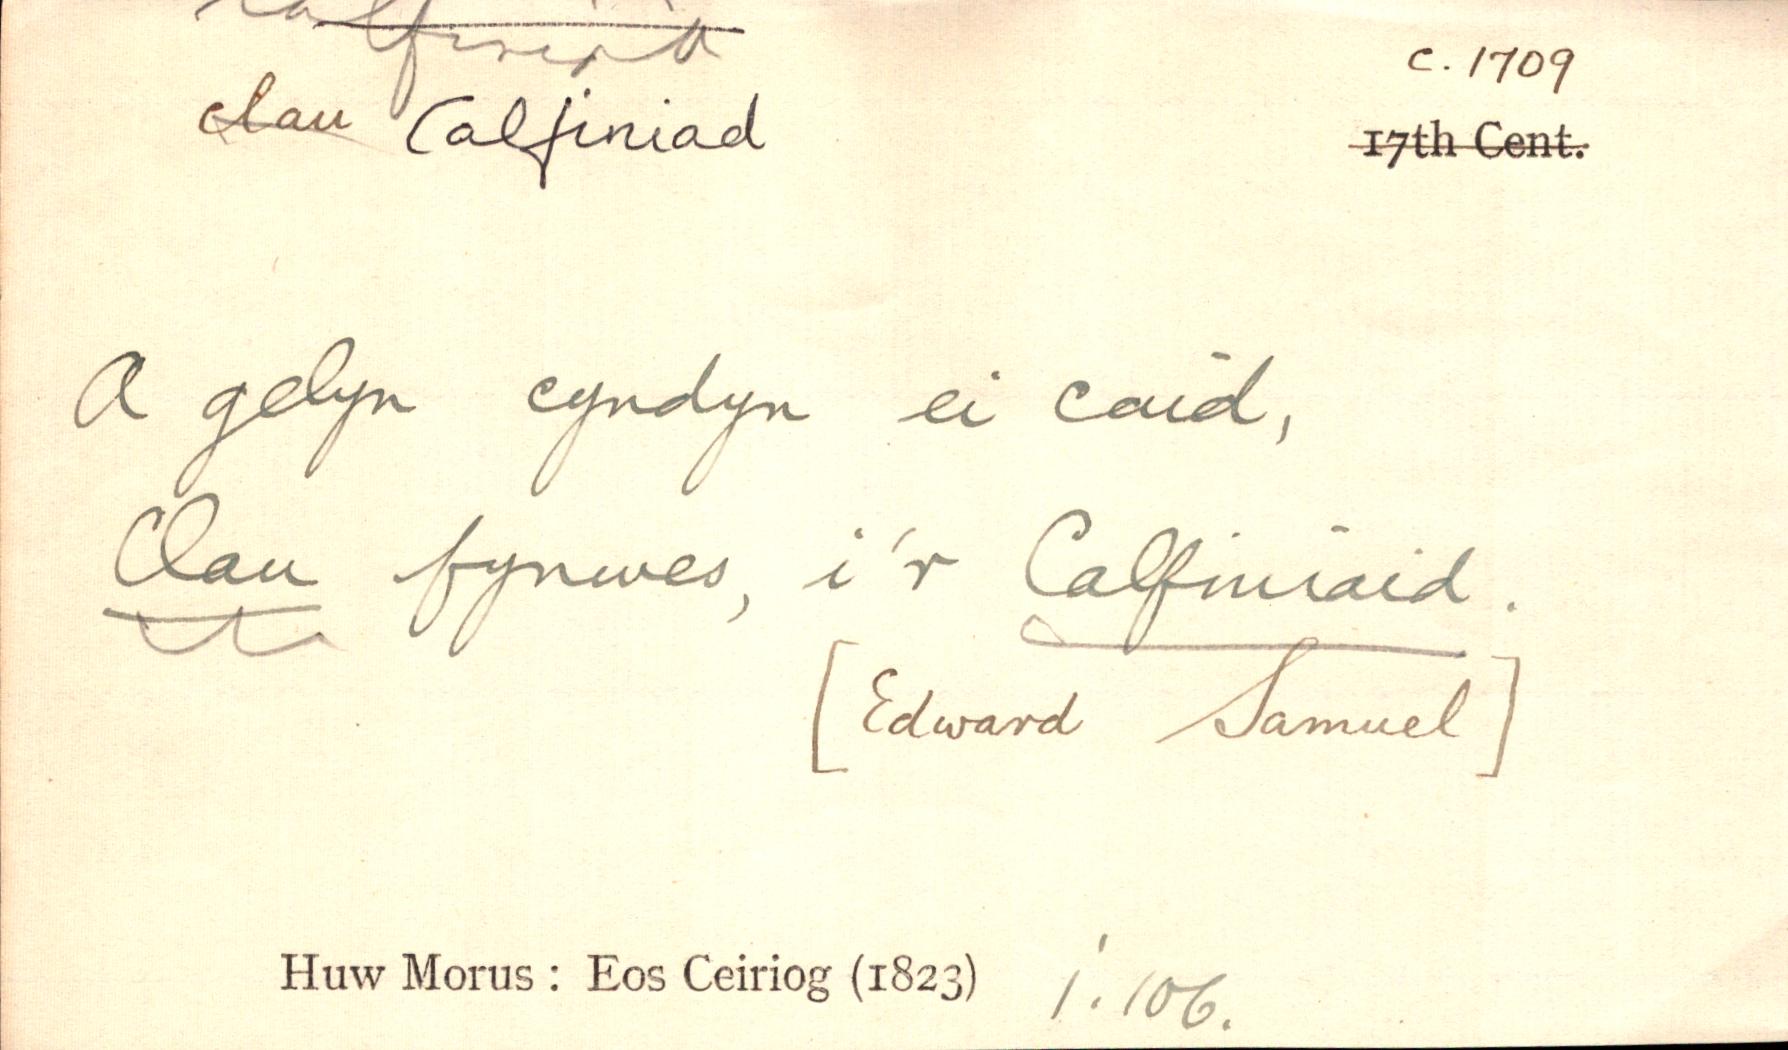 Calfiniad
clau Calfiniad
c. 1709
17th Cent.
A gelyn cyndyn ei caid,
Clau fynwes, i'r Calfiniaid.
[Edward Samuel]
Huw Morus: Eos Ceiriog (1823) i. 106.